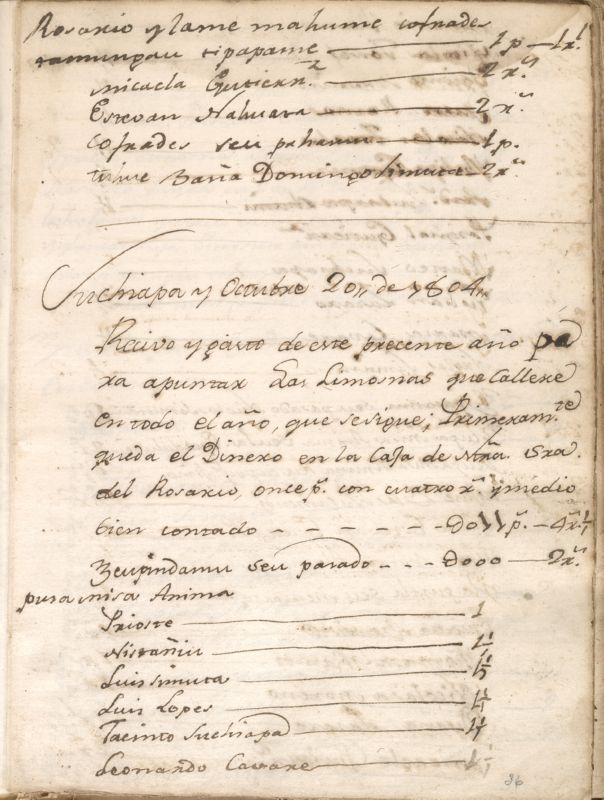 Rosario y lame mahume cofrades
tipapame — 1 p — 1 r.^l
micaela Gutierr.^z — 2 r.^s
Estevan Nahuata — 2 r.^s
Cofrades seu pahamu — 1 p.
Domingo Simuta — 2 r.^s
Suchiapa y Octubre 20,, de 1804,,
Recivo y gasto de este precente año pa
ra apuntar Las Limosnas que Callere
en todo el año, que se sigue; Primeram.^te
queda el Dinero en la Caja de Nrã. Sra.
del Rosario, once p.^s con cuatro r.^s y medio
bien contado - - - - - - - 0011 p.^s - 4 r.^s ½
seu parado - - - 0000 — 2 r.^s
pura misa Anima
Prioste — 1
1½
Luis Simuta — 1½
Luis Lopes — 1½
Jacinto Suchiapa — 1½
Leonardo — 1½
36